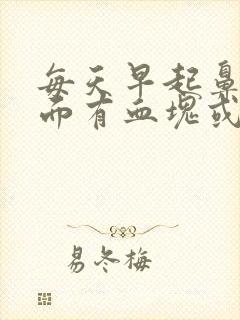 每天早起鼻
而有血塊或
易冬梅